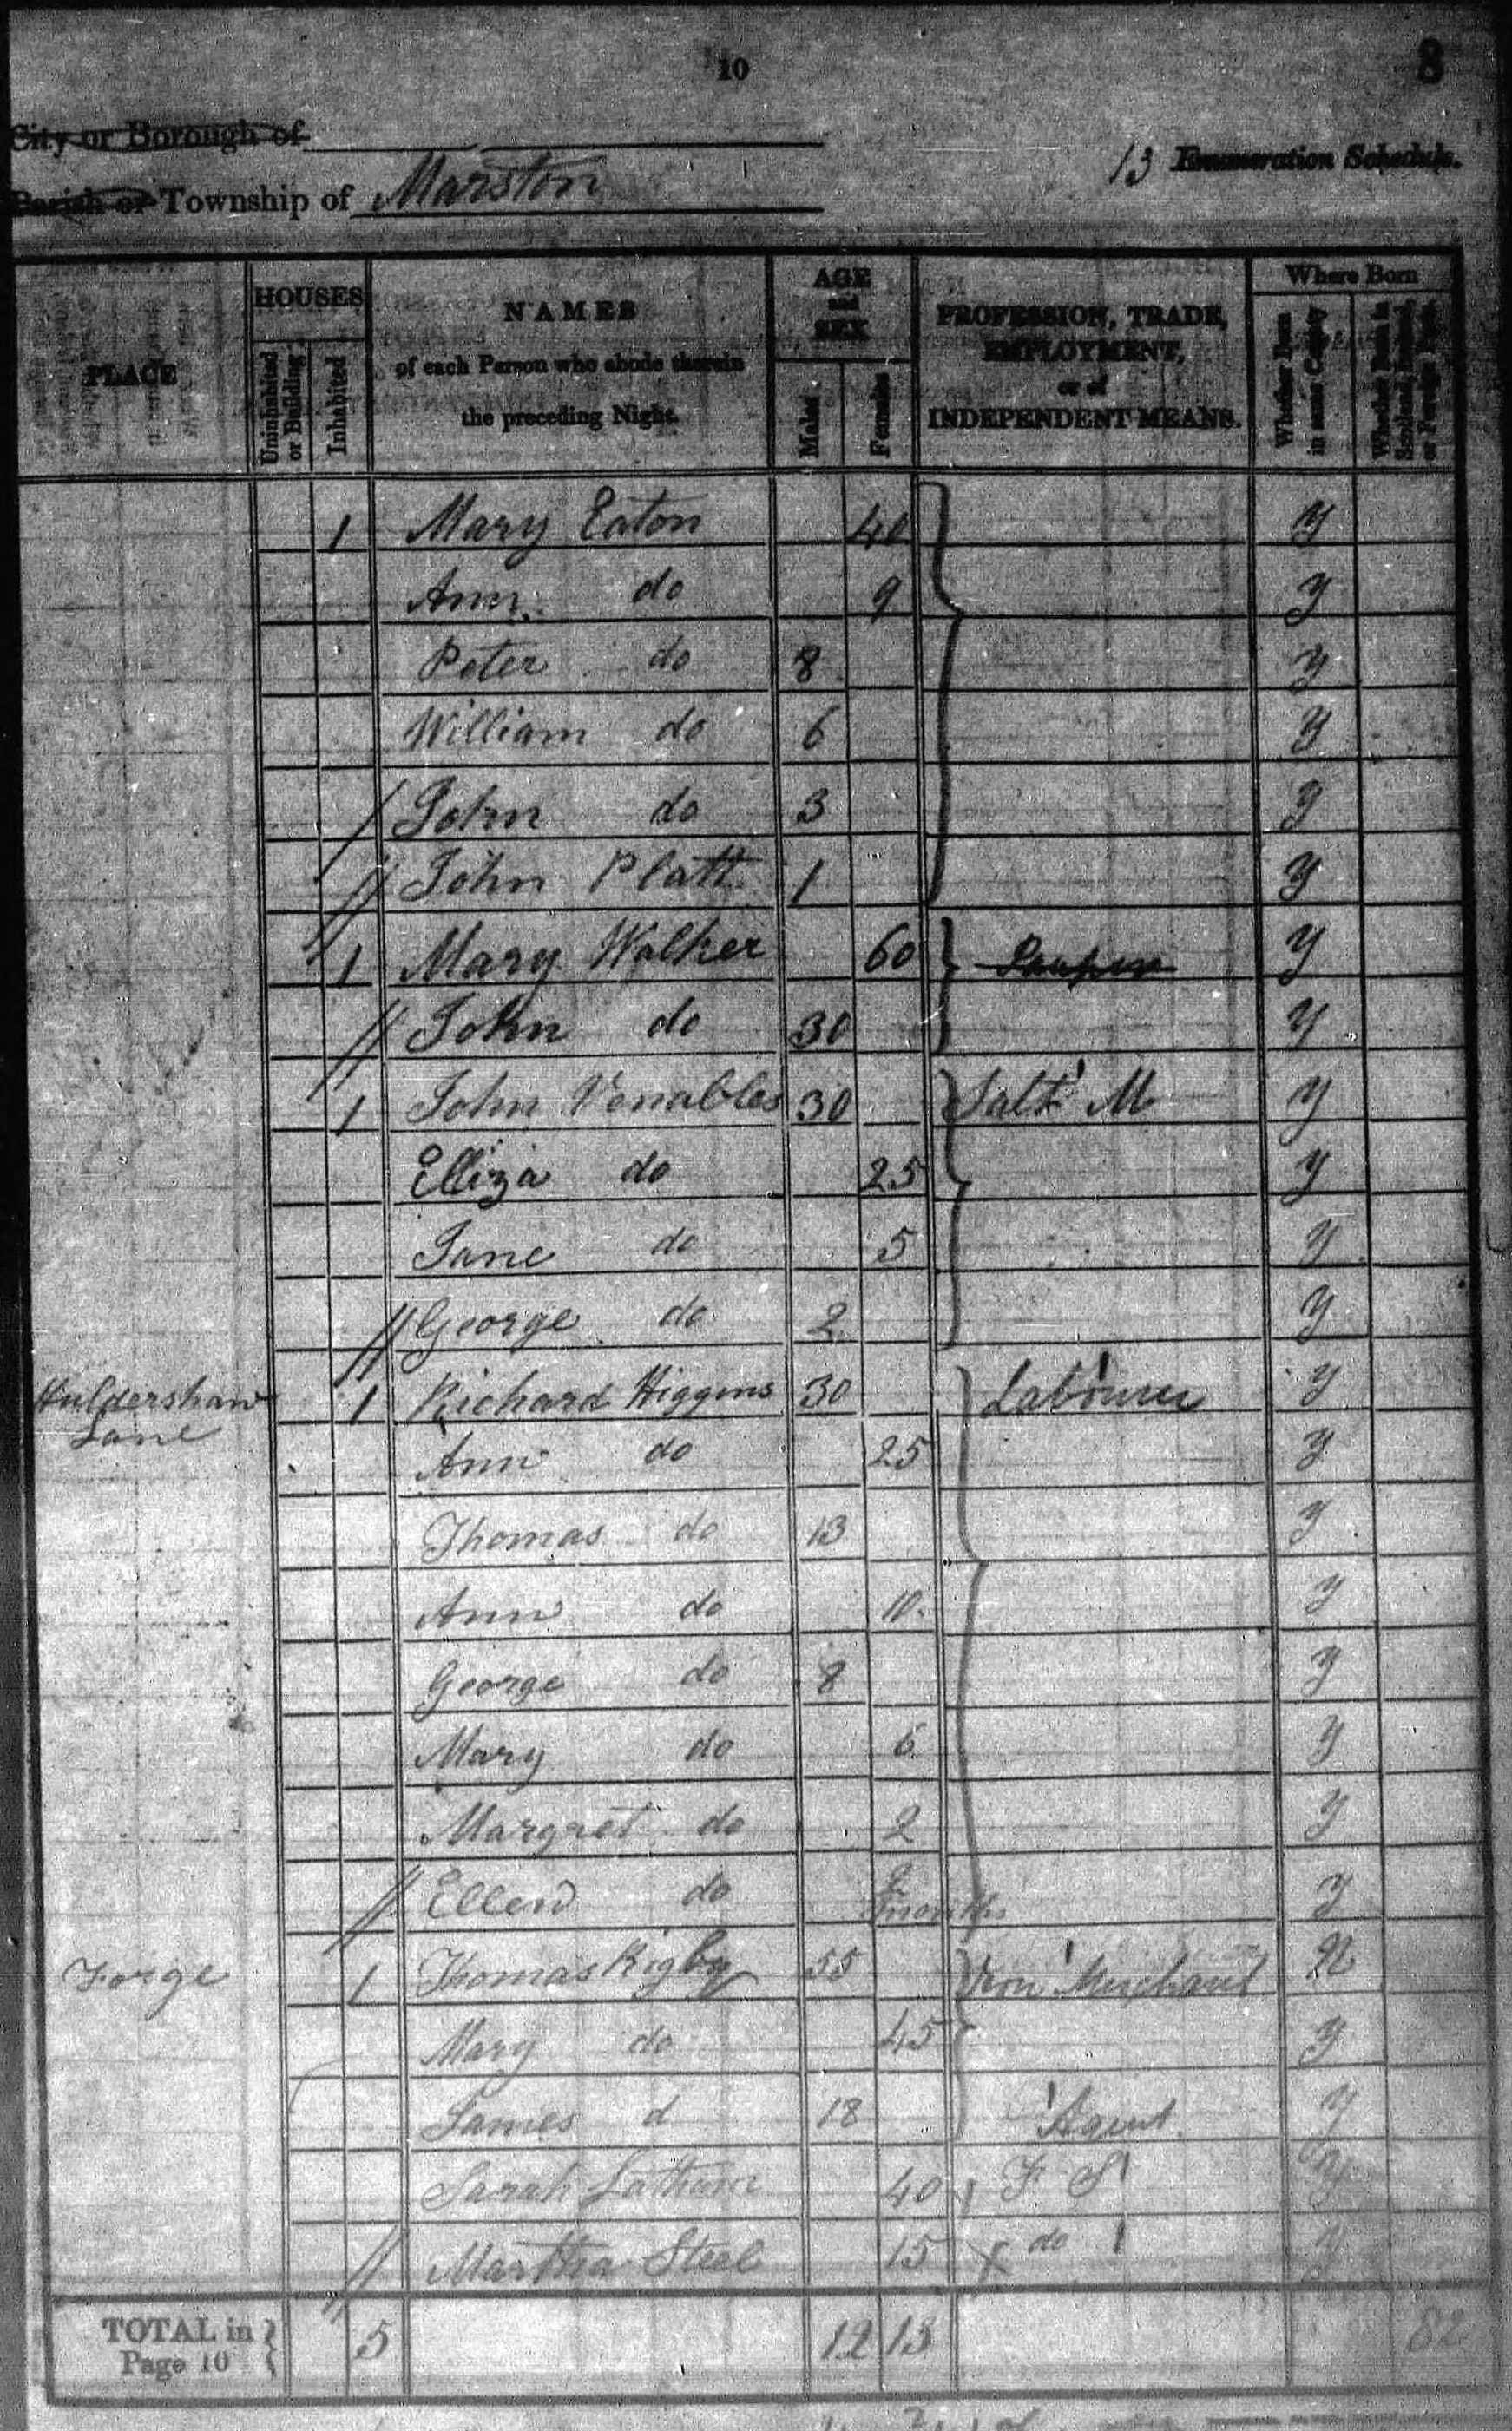 10
8
City or Borough of
13 Enumeration Schedule.
Parish or Township of Marston
PLACE
HOUSES
Uninhabited or Building
Inhabited
NAMES
of each Person who abode therein
the preceding Night.
AGE
and
SEX
Males
Females
PROFESSION, TRADE,
EMPLOYMENT,
or of
INDEPENDENT MEANS.
Where Born
Whether Born in same County
Whether Born in Scotland, Ireland, or Foreign Parts.
1 Mary Eaton 40 y
Ann do 9 y
Peter do 8 y
William do 6 y
John do 3 y
John Platt 1 y
1 Mary Walker 60 Pauper y
John do 30 y
1 John Venables 30 Salt M y
Elliza do 25 y
Jane do 5 y
George do 2 y
Huldershaw Lane 1 Richard Higgins 30 Labourer y
Ann do 25 y
Thomas do 13 y
Ann do 10 y
George do 8 y
Mary do 6 y
Margret do 2 y
Ellen do months y
Forge 1 Thomas Rigby 55 Iron Merchant N
Mary do 45 y
James d 18 Agent y
Sarah Latham 40 F S y
Martha Steel 15 do y
TOTAL in Page 10 5 12 13 82